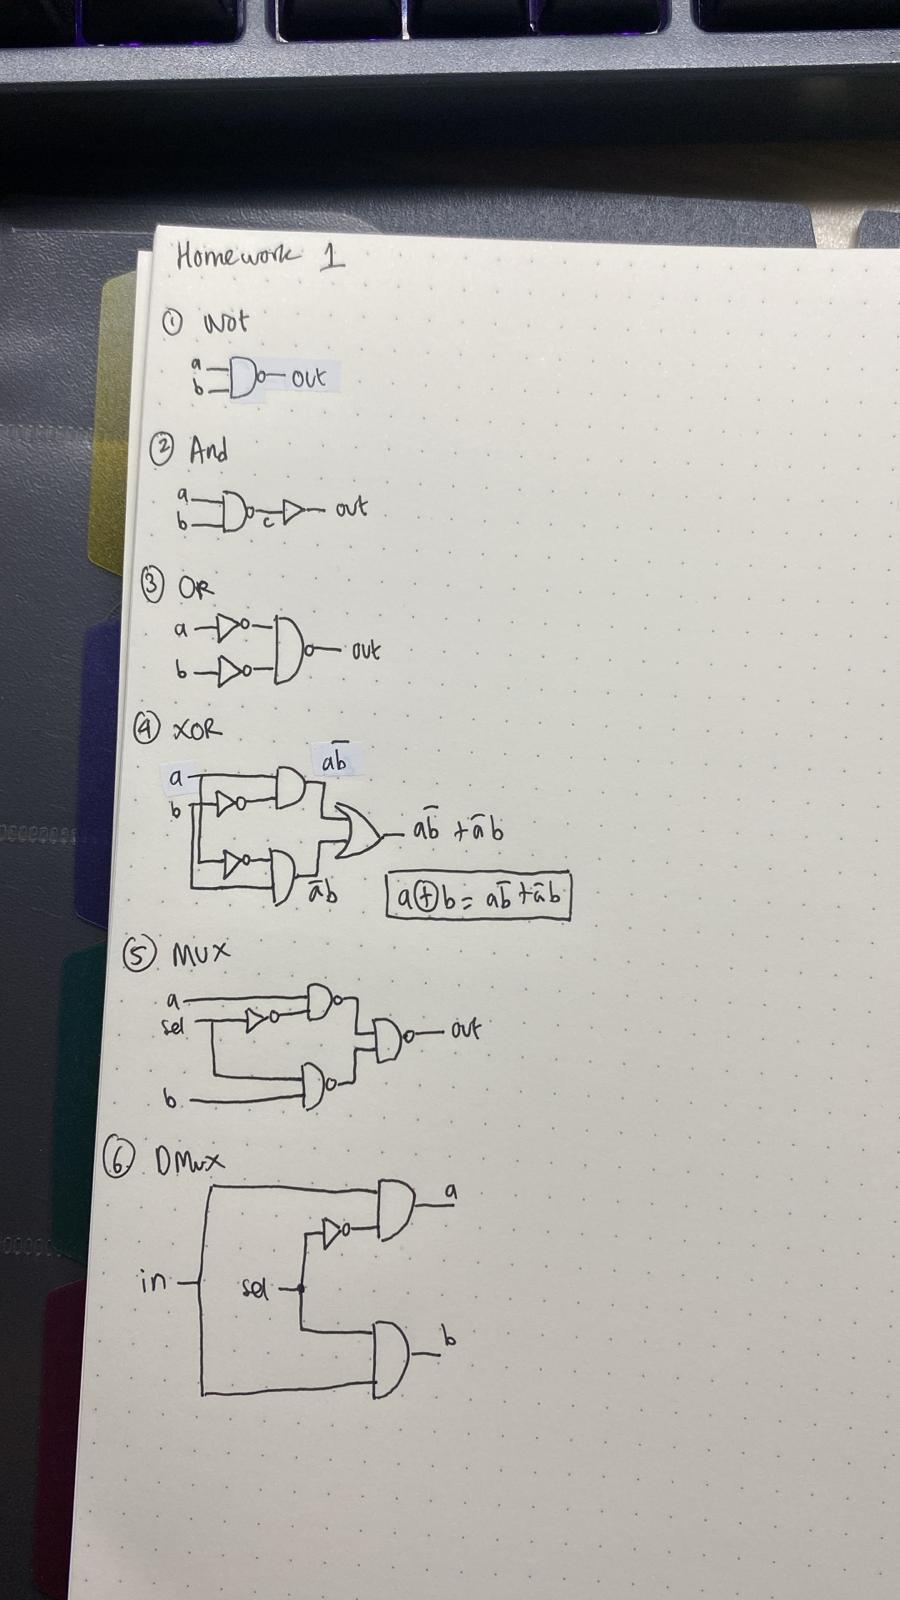 Homework 1
① Not
a
b
out
② And
a
b
c
out
③ OR
a
b
out
④ XOR
a
b
ab̅
a̅b
ab̅ + a̅b
a⊕b = ab̅ + a̅b
⑤ MUX
a
sel
b
out
⑥ DMux
in
sel
a
b